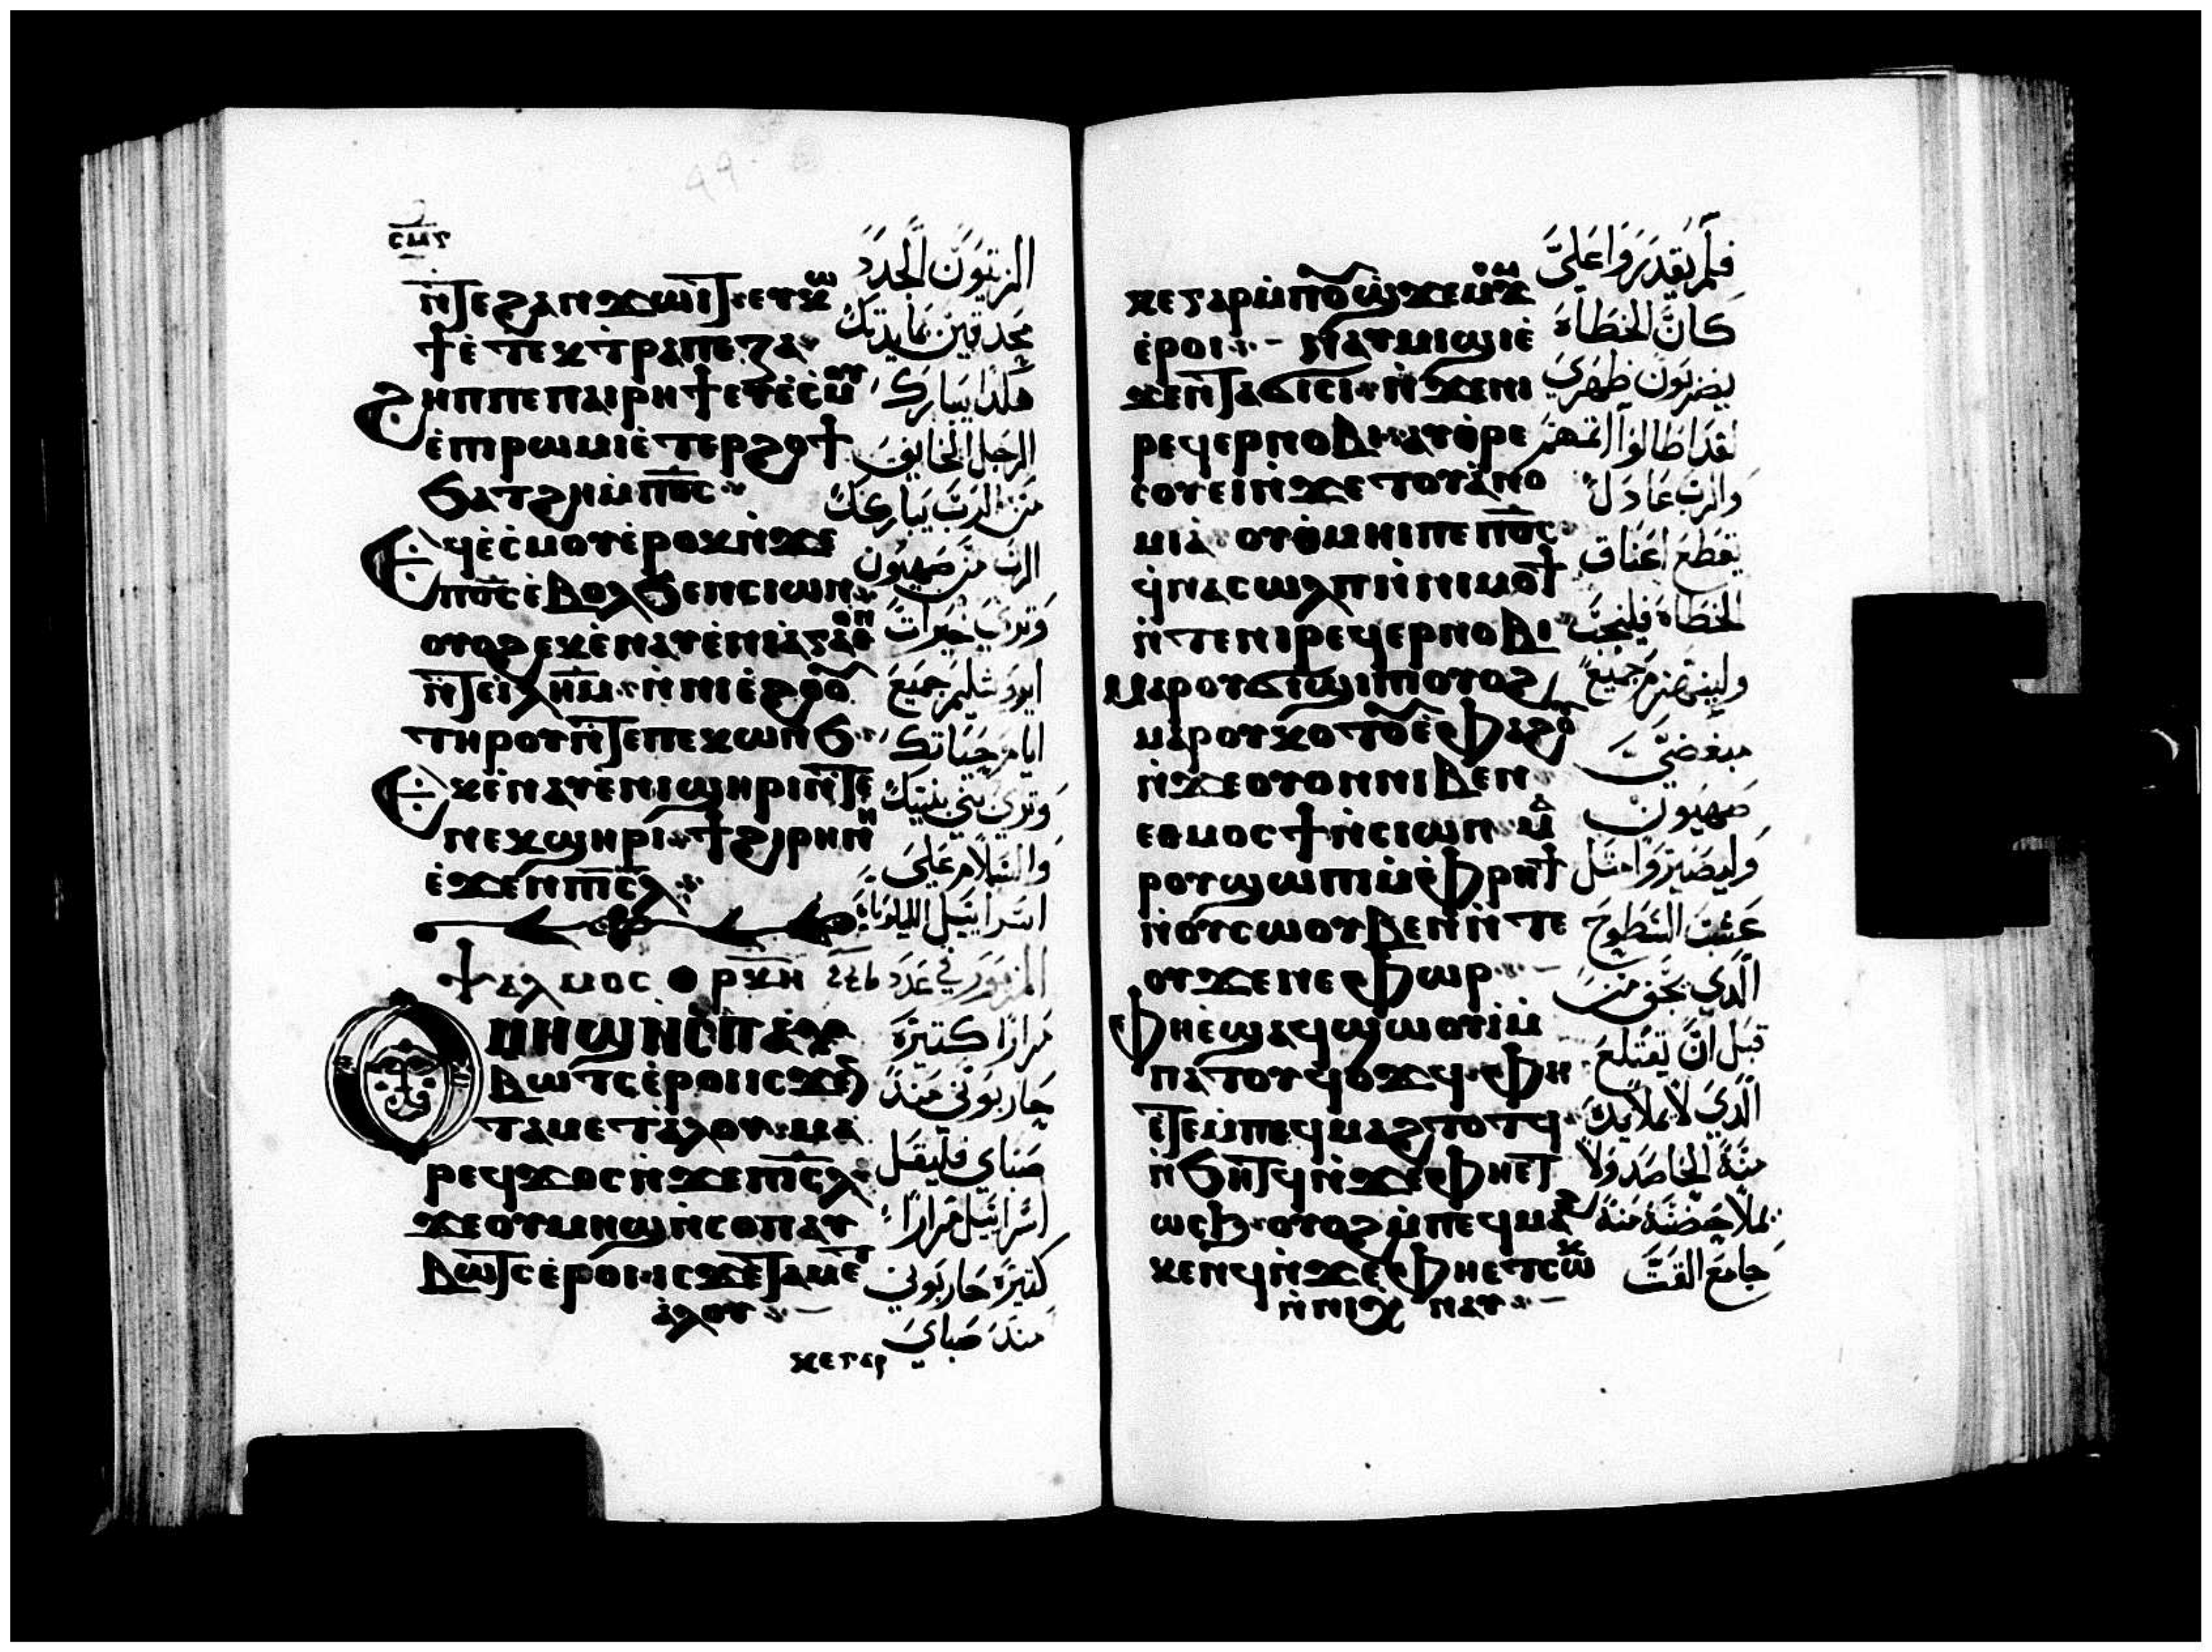 ⲥⲙⲋ
ⲛ̇ⲧⲉϩⲁⲛϫⲱⲓⲧ ⲉⲩⲕⲱ
ϯⲉ̇ⲧⲉⲕⲧ̇ⲣⲁⲡⲉⲍⲁ
ϩⲏⲡⲡⲉ ⲡⲁⲓⲣⲏϯ ⲉⲩⲉ̇ⲥ̇ⲙⲟⲩ
ⲉ̇ⲡⲓⲣⲱⲙⲓ ⲉ̇ⲧⲉⲣϩⲟϯ
ϧⲁⲧϩⲏ ⲙ̇ⲡ̅ⲟ̅ⲥ̅
ⲉϥⲉ̇ⲥ̇ⲙⲟⲩ ⲉ̇ⲣⲟⲕ ⲛ̇ϫⲉ
ⲡ̅ⲟ̅ⲥ̅ ⲉ̇ⲃⲟⲗϧⲉⲛ ⲥⲓⲱⲛ
ⲟⲩⲟϩ ⲉⲕⲉ̇ⲛⲁⲩ ⲉ̇ⲛⲓⲁ̇ⲅⲁⲑⲟⲛ
ⲛ̇ⲧⲉ ⲓ̇ⲗ̅ⲏ̅ⲙ̅ ⲛ̇ⲛⲓⲉ̇ϩⲟⲟⲩ
ⲧⲏⲣⲟⲩ ⲛ̇ⲧⲉ ⲡⲉⲕⲱⲛϧ
ⲉⲕⲉ̇ⲛⲁⲩ ⲉ̇ⲛⲓϣⲏⲣⲓ ⲛ̇ⲧⲉ
ⲛⲉⲕϣⲏⲣⲓ ϯϩⲓⲣⲏⲛⲏ
ⲉ̇ϫⲉⲛ ⲡⲓ̅ⲥ̅ⲗ̅
ⲯⲁⲗⲙⲟⲥ ⲣⲕⲏ
المزمور في عدد
ⲟⲩⲙⲏϣ ⲛ̇ⲥⲟⲡ ⲁⲩ
ⲃⲱⲧⲥ ⲉ̇ⲣⲟⲓ ⲓⲥϫⲉⲛ
ⲧⲁⲙⲉⲧⲁ̇ⲗⲟⲩ ⲙⲁ
ⲣⲉϥϫⲟⲥ ⲛ̇ϫⲉ ⲡⲓ̅ⲥ̅ⲗ̅
ϫⲉ ⲟⲩⲙⲏϣ ⲛ̇ⲥⲟⲡ ⲁⲩ
ⲃⲱⲧⲥ ⲉ̇ⲣⲟⲓ ⲓⲥϫⲉⲛ ⲧⲁⲙⲉⲧ
ⲁ̇ⲗⲟⲩ
ⲕⲉⲅⲁⲣ
الزيتون الجدد
محدقين بمايدتك
هكذا يبارك
الرجل الخايف
من الرب يباركك
الرب من صهيون
وترى خيرات
ايروشليم جميع
ايام حياتك
وترى بني بنيك
والسلام على
اسراييل الليلوياه
مرارا كتيرة
حاربوني مند
صباي فليقل
اسراييل مرارا
كتيرة حاربوني
مند صباي
ⲕⲉⲅⲁⲣ ⲙ̇ⲡⲟⲩϣϫⲉⲙϫⲟⲙ
ⲉ̇ⲣⲟⲓ ⲛⲁⲩⲙⲓϣⲓ ⲉ̇
ϫⲉⲛ ⲧⲁϭⲓⲥⲓ ⲛ̇ϫⲉ ⲛⲓ
ⲣⲉϥⲉⲣⲛⲟⲃⲓ ⲁⲩⲑⲣⲉ
ⲥⲟⲩⲉⲓ ⲛ̇ϫⲉ ⲧⲟⲩⲁ̇ⲛⲟ
ⲙⲓⲁ ⲟⲩⲑ̇ⲙⲏⲓ ⲡⲉ ⲡ̅ⲟ̅ⲥ̅
ϥ̇ⲛⲁⲥⲱⲗⲡ ⲛ̇ⲛⲓⲙⲟϯ
ⲛ̇ⲧⲉ ⲛⲓⲣⲉϥⲉⲣⲛⲟⲃⲓ
ⲙⲁⲣⲟⲩϭⲓϣⲓⲡⲓ ⲟⲩⲟϩ
ⲙⲁⲣⲟⲩⲕⲟⲧⲟⲩ ⲉ̇ⲫⲁϩⲟⲩ
ⲛ̇ϫⲉ ⲟⲩⲟⲛ ⲛⲓⲃⲉⲛ
ⲉⲑⲙⲟⲥϯ ⲛ̇ⲥⲓⲱⲛ ⲙⲁ
ⲣⲟⲩϣⲱⲡⲓ ⲙ̇ⲫ̇ⲣⲏϯ
ⲛ̇ⲟⲩⲥⲱⲟⲩⲃⲉⲛ ⲛ̇ⲧⲉ
ⲟⲩϫⲉⲛⲉⲫⲱⲣ
ⲫⲏ ⲉ̇ϣⲁϥϣⲱⲟⲩⲓ ⲙ̇
ⲡⲁⲧⲟⲩϥⲟϫϥ ⲫⲏ
ⲉⲧⲉ ⲙ̇ⲡⲉϥⲙⲁϩ ⲧⲟⲧϥ
ⲛ̇ϧⲏⲧϥ ⲛ̇ϫⲉ ⲫⲏⲉⲧ
ⲱⲥϧ ⲟⲩⲟϩ ⲙ̇ⲡⲉϥⲙⲁϩ
ⲕⲉⲛϥ ⲛ̇ϫⲉ ⲫⲏⲉⲧⲥⲱⲕ
ⲛ̇ⲛⲓϫⲛⲁⲩ
فلم يقدروا علي
كان الخطاه
يضربون ظهري
لقد اطالوا اتمهم
والرب عادل
يقطع اعناق
الخطاه فليخب
ولينهزم جميع
مبغضي
صهيون
وليصيروا متل
عشب السطوح
الدي يجف من
قبل ان يقتلع
الدي لا يملا يده
منه الحاصد ولا
يملا حضنه منه
جامع القت